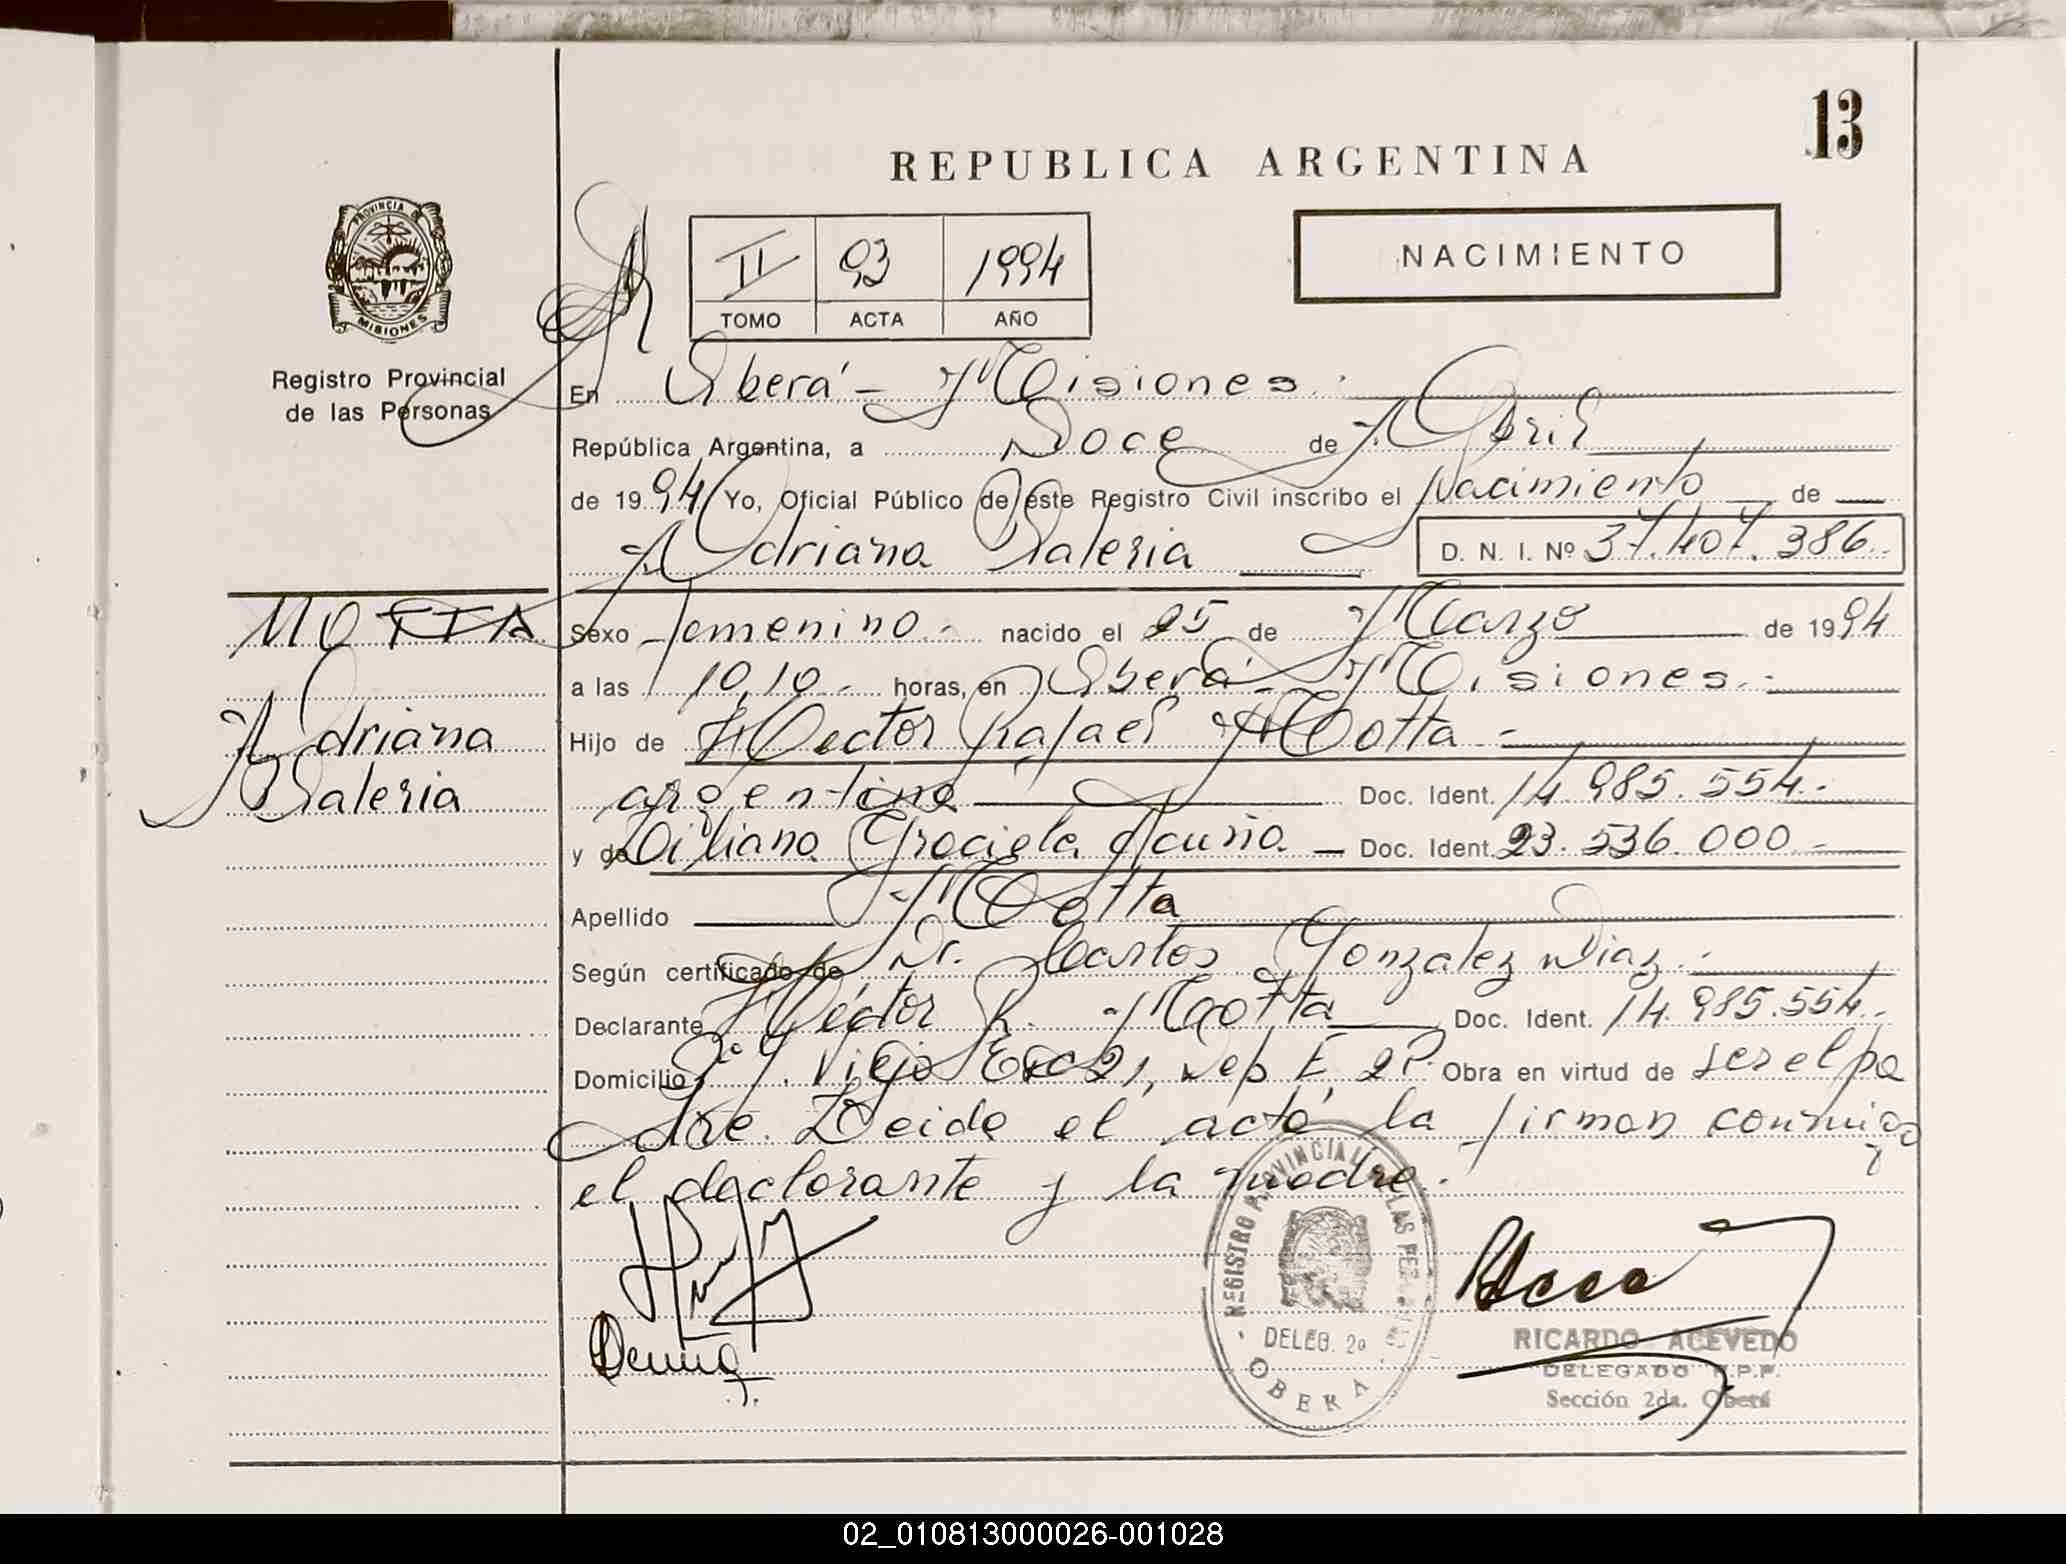 13
REPUBLICA ARGENTINA
PROVINCIA DE
MISIONES
Registro Provincial
de las Personas
II 93 1994
TOMO ACTA AÑO
NACIMIENTO
En Oberá - Misiones.-
República Argentina, a Doce de Abril
de 1994 Yo, Oficial Público de este Registro Civil inscribo el Nacimiento de
Adriana Valeria D. N. I. Nº 37.407.386.
MOTTA
Adriana
Valeria
Sexo Femenino.- nacido el 25 de Marzo de 1994
a las 10,10.- horas, en Oberá - Misiones.-
Hijo de Héctor Rafael Motta -
argentino Doc. Ident. 14.985.554.-
y de Liliana Graciela Acuña - Doc. Ident. 23.536.000.-
Apellido Motta
Según certificado de Dr. Carlos Gonzalez Diaz.-
Declarante Héctor R. Motta Doc. Ident. 14.985.554.-
Domicilio Viejo Esc 21, Dep E, 2º P. Obra en virtud de ser el pa
dre. Leida el acta, la firman conmigo
el declarante y la madre.
REGISTRO PROVINCIAL DE LAS PERSONAS
DELEG. 2a
OBERA
RICARDO ACEVEDO
DELEGADO R.P.P.
Sección 2da. Oberá
02_010813000026-001028